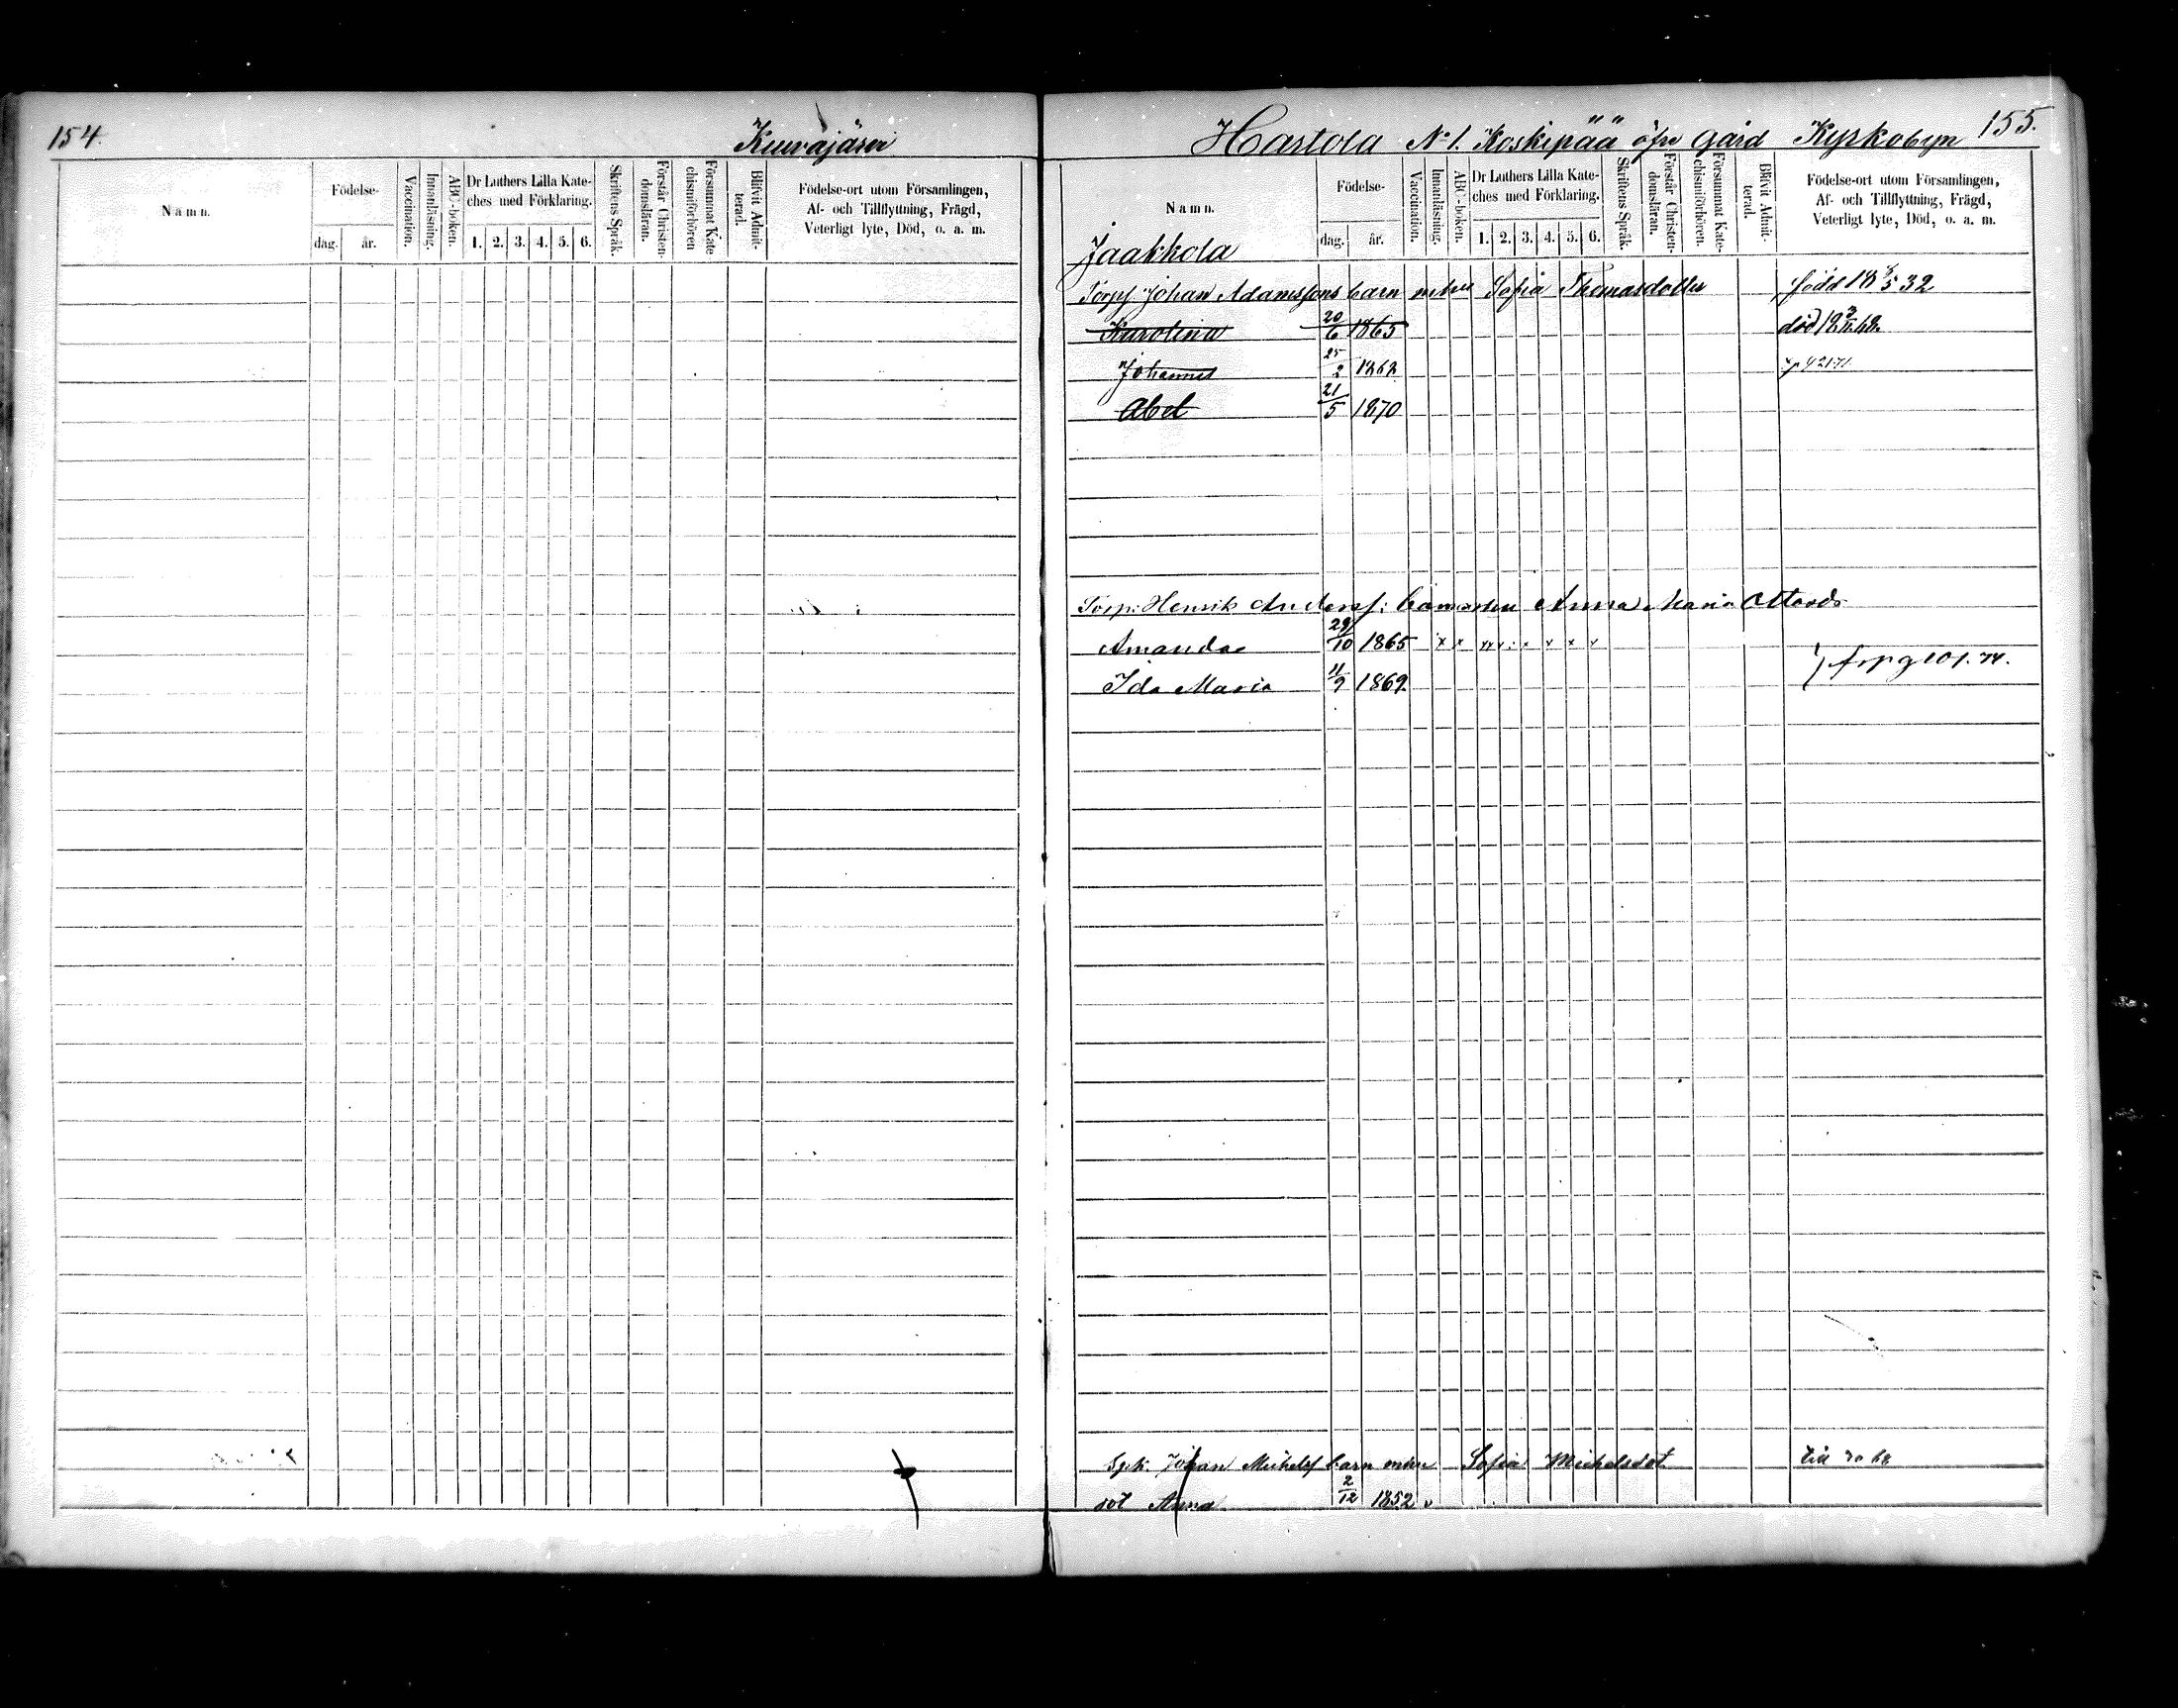 154.
Kuivajärvi
Namn.
Födelse-
dag. år.
Vaccination.
Innanläsning.
ABC-boken.
Dr Luthers Lilla Kate-
ches med Förklaring.
1. 2. 3. 4. 5. 6.
Skriftens Språk.
Förstår Christen-
domsläran.
Försummat Kate
chismiförhören
Blifvit Admit-
terad.
Födelse-ort utom Församlingen,
Af- och Tillflyttning, Frägd,
Veterligt lyte, Död, o. a. m.
Hartola No 1. Koskipää öfre Gård Kyrkobyn 155.
Namn.
Födelse-
dag. år.
Vaccination.
Innanläsning.
ABC-boken.
Dr Luthers Lilla Kate-
ches med Förklaring.
1. 2. 3. 4. 5. 6.
Skriftens Språk.
Förstår Christen-
domsläran.
Försummat Kate-
chismiförhören.
Blifvit Admit-
terad.
Födelse-ort utom Församlingen,
Af- och Tillflyttning, Frägd,
Veterligt lyte, Död, o. a. m.
Jaakkola
Torp Johan Adamssons barn m hu Sofia Thomasdotter född 18 5 32
Karolina 20/6 1865 död
Johannes 25/2 1868
Abel 21/5 1870
Torp: Henrik Anders: Anna Maria Ottosd
Amanda 29/10 1865 x x
Ida Maria 4/9 1869 pg 101. 74.
Johan Michelsf barn Sofia Michelsdot
dot Anna 2/12 1852 v